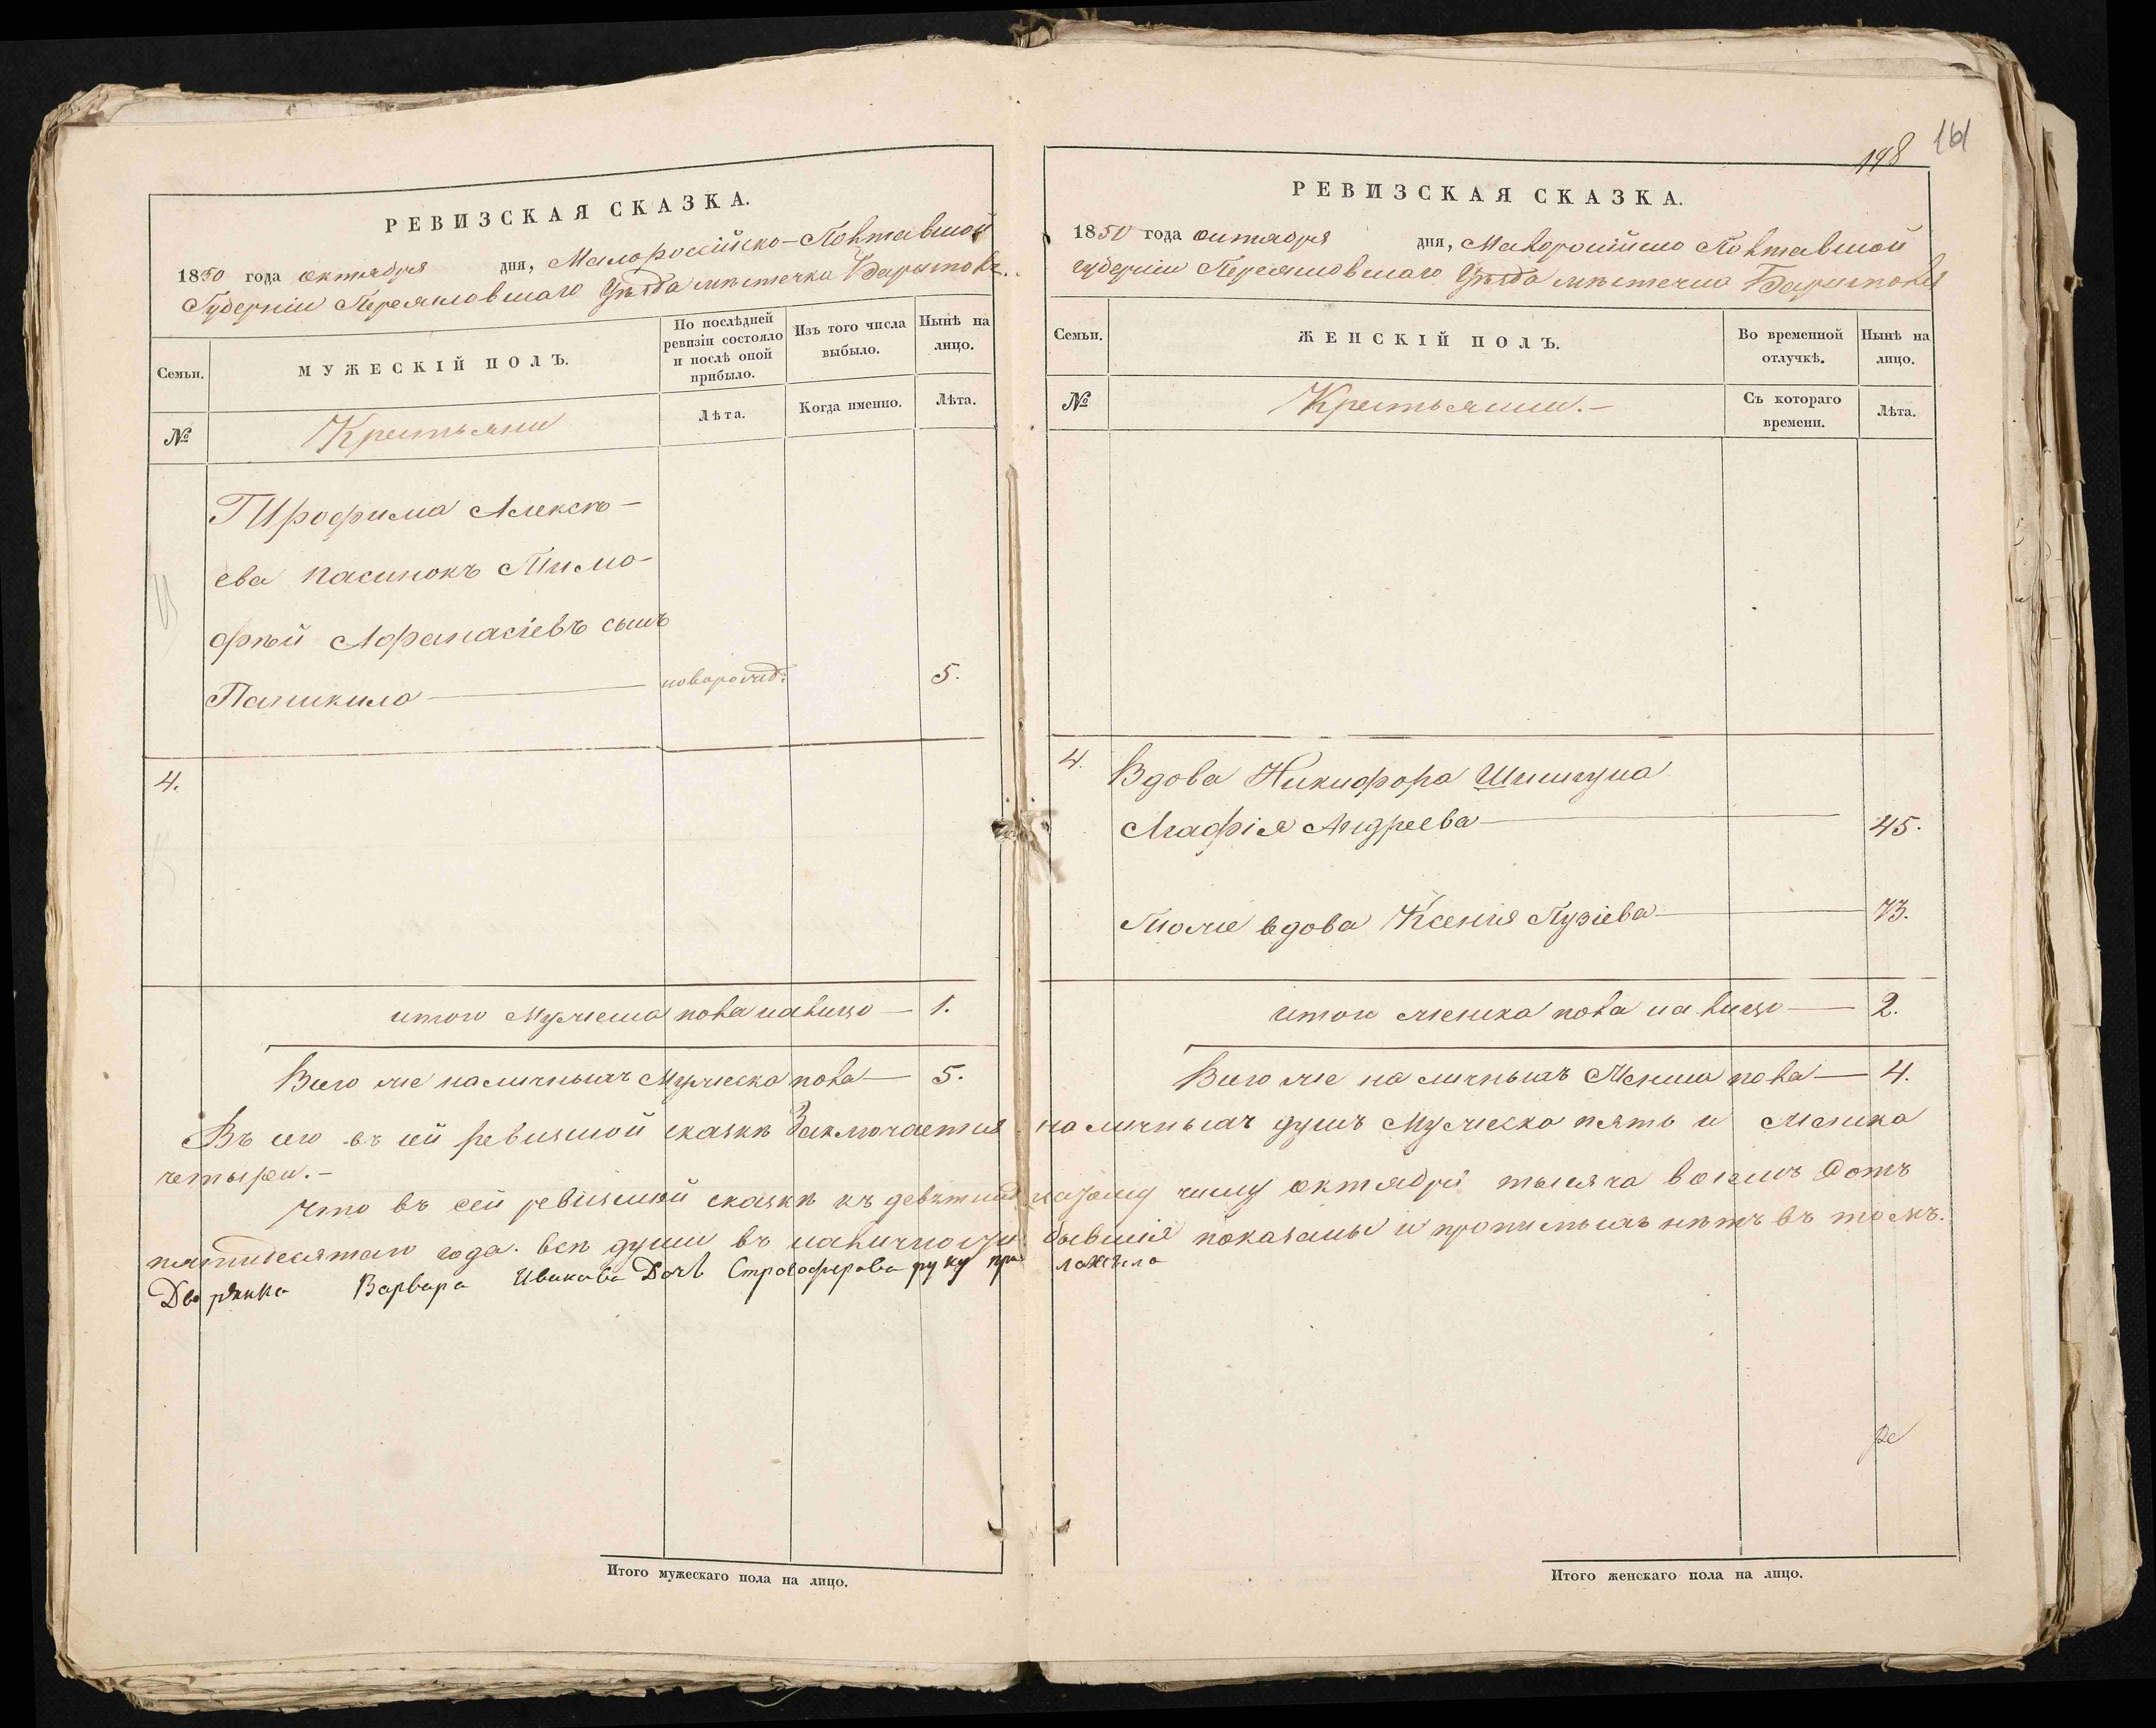 РЕВИЗСКАЯ СКАЗКА.
1850 года октября дня, Малороссійско-Полтавской
Губерніи Переяславскаго Уѣзда мѣстечка
Семьи.
МУЖЕСКІЙ ПОЛЪ.
По послѣдней ревизіи состояло и послѣ оной прибыло.
Изъ того числа выбыло.
Нынѣ на лицо.
№
Крестьяне
Лѣта.
Когда именно.
Лѣта.
Трофима Алексѣ-
ева пасинокъ Тимо-
фѣй Афанасіевъ сынъ
новорожд: 5.
4.
итого Мужеска пола налицо — 1.
Всего же наличныхъ Мужеска пола — 5.
198
161
РЕВИЗСКАЯ СКАЗКА.
1850 года октября дня, Малоросійско Полтавской
губерніи Переяславскаго Уѣзда мѣстечка
Семьи.
ЖЕНСКІЙ ПОЛЪ.
Во временной отлучкѣ.
Нынѣ на лицо.
№
Крестьяне.—
Съ котораго времени.
Лѣта.
4. Вдова Никифора
Агафія Андреева — 45.
Тоже вдова Ксенія — 73.
итого женска пола на лицо — 2.
Всего же наличныхъ Женска пола — 4.
Въ сей ревизской сказкѣ Заключается наличныхъ душъ Мужеска пять и женска
четыри.—
Что въ сей ревизской сказкѣ къ числу октября тысяча восемь сотъ
пятидесятаго года. всѣ души въ наличности бывшія показаны и прописныхъ нѣтъ въ томъ.
Дворянка Варвара Иванова Дочь руку приложила
Итого мужескаго пола на лицо.
Итого женскаго пола на лицо.